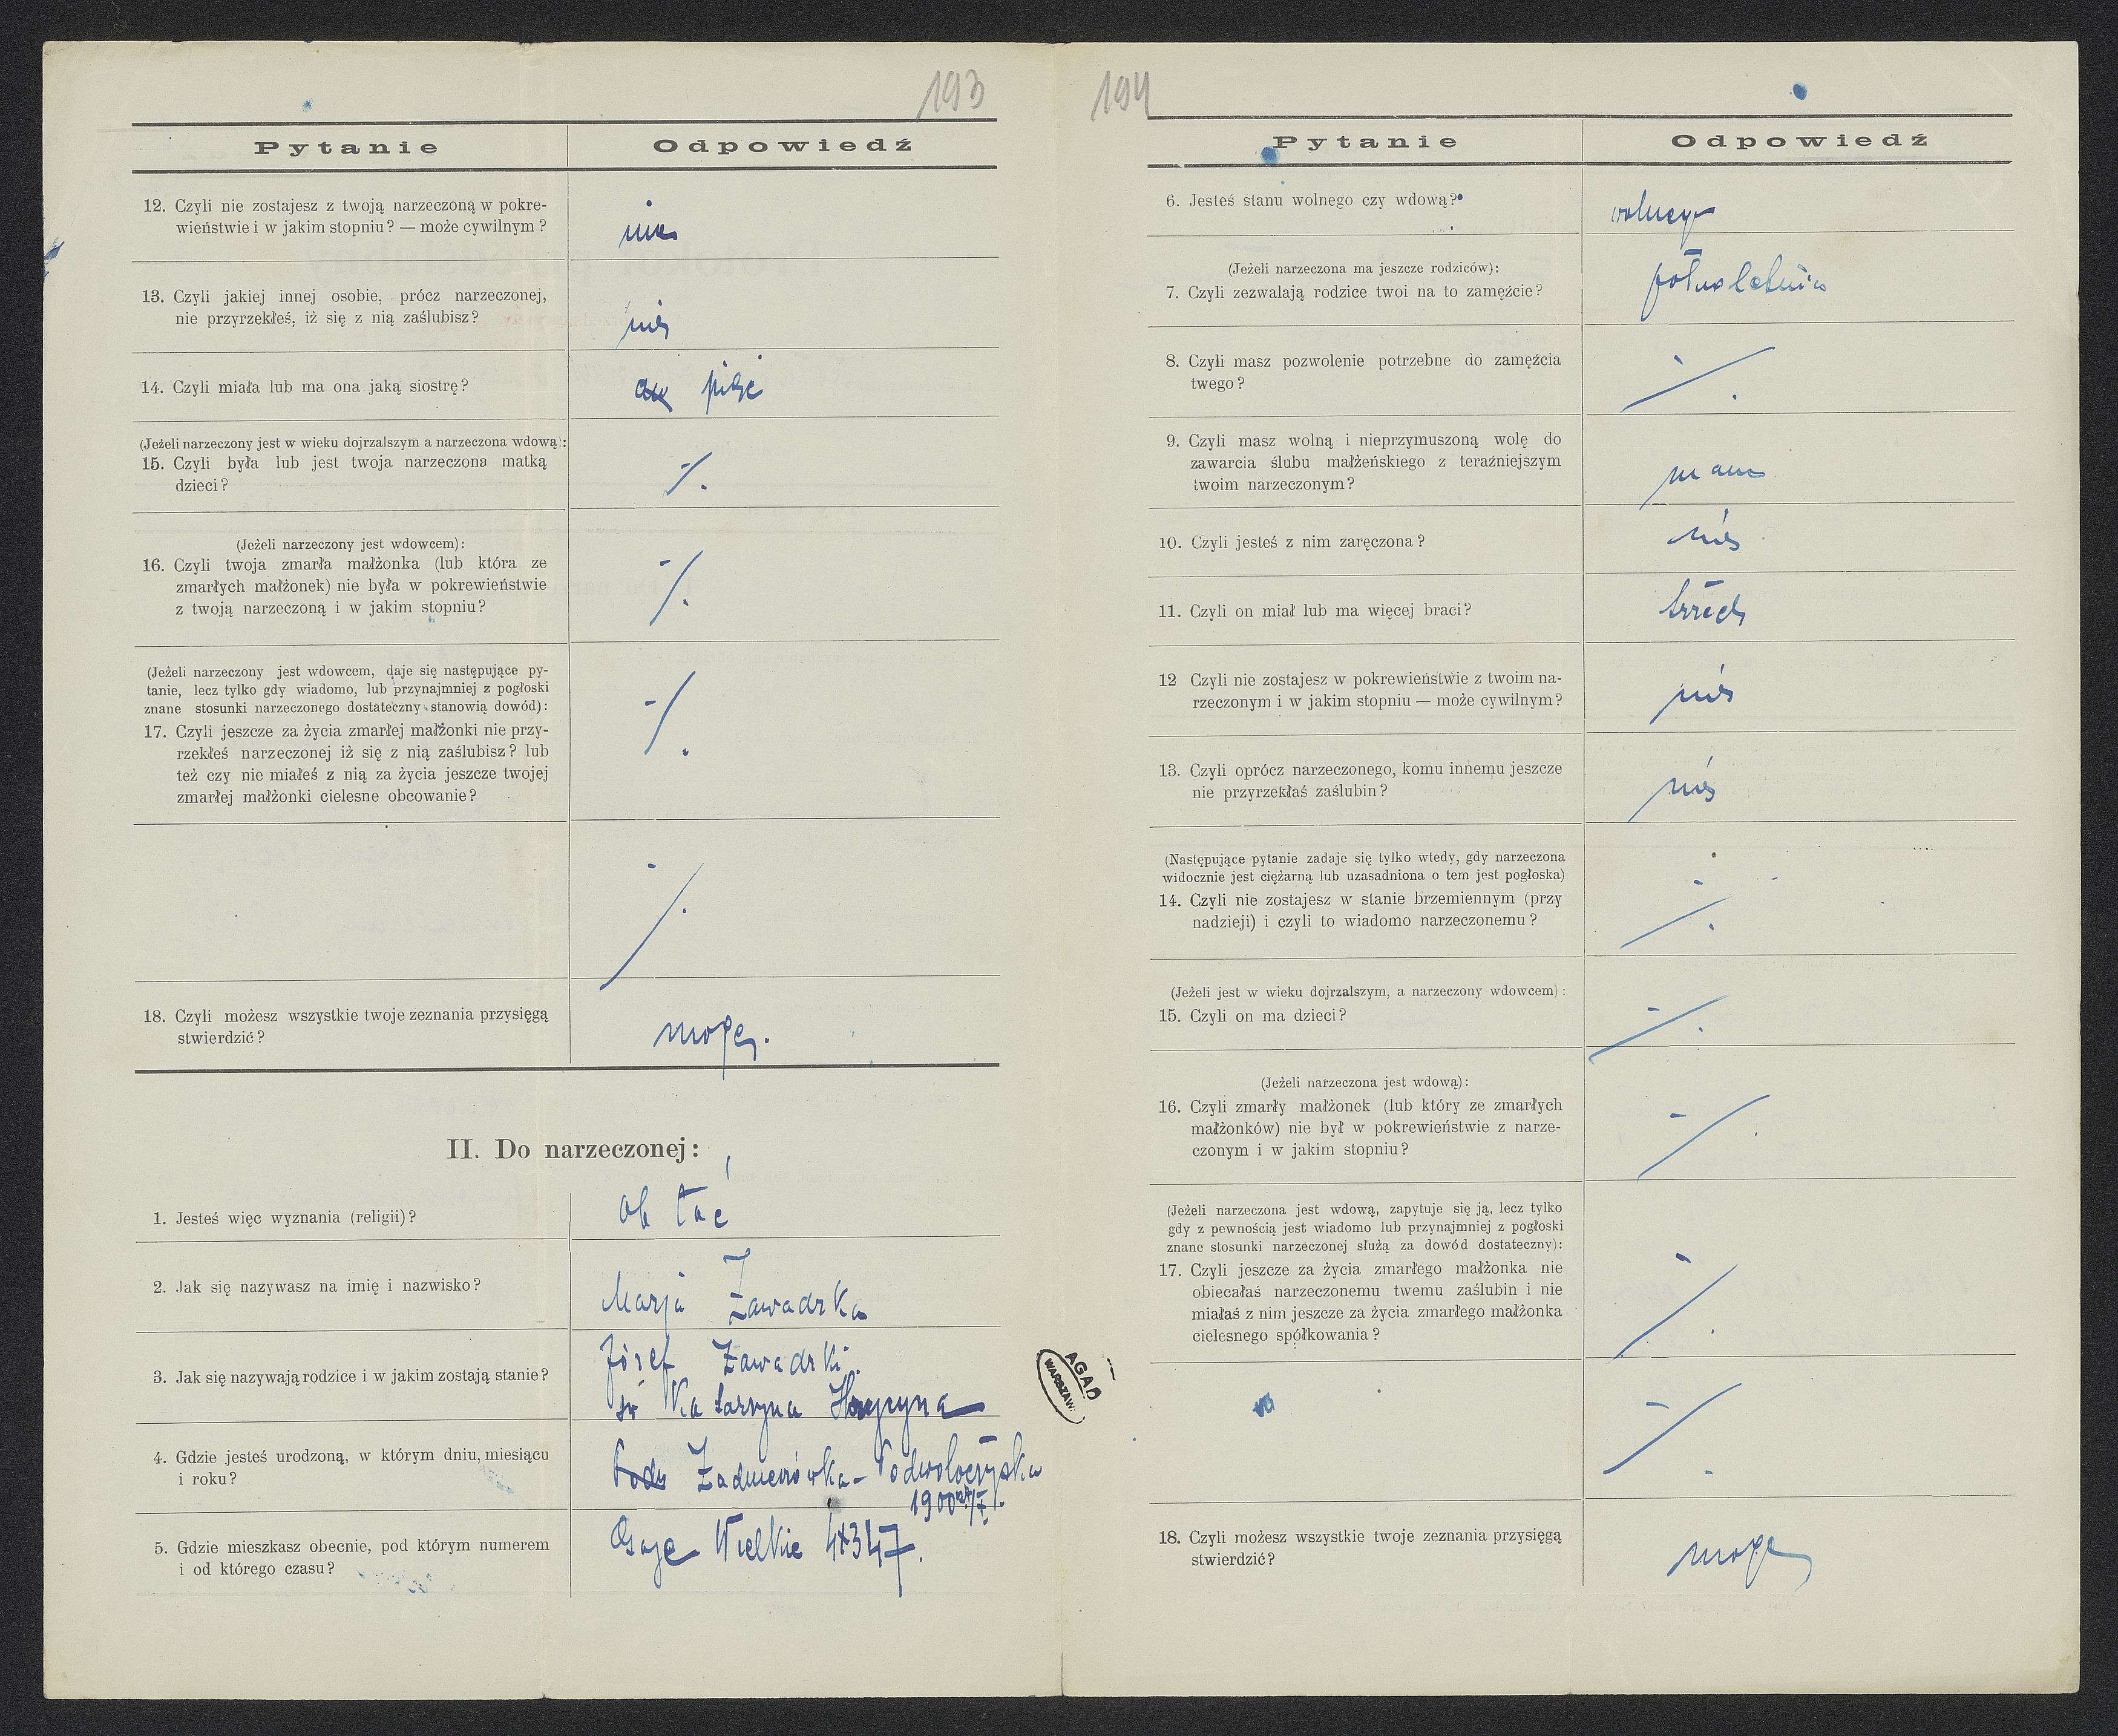 193
Pytanie Odpowiedź
12. Czyli nie zostajesz z twoją narzeczoną w pokre-
wieństwie i w jakim stopniu? — może cywilnym?
nie
13. Czyli jakiej innej osobie, prócz narzeczonej,
nie przyrzekłeś, iż się z nią zaślubisz?
nie
14. Czyli miała lub ma ona jaką siostrę?
pięć
(Jeżeli narzeczony jest w wieku dojrzalszym a narzeczona wdową):
15. Czyli była lub jest twoja narzeczona matką
dzieci?
-/.
(Jeżeli narzeczony jest wdowcem):
16. Czyli twoja zmarła małżonka (lub która ze
zmarłych małżonek) nie była w pokrewieństwie
z twoją narzeczoną i w jakim stopniu?
-/.
(Jeżeli narzeczony jest wdowcem, daje się następujące py-
tanie, lecz tylko gdy wiadomo, lub przynajmniej z pogłoski
znane stosunki narzeczonego dostateczny stanowią dowód):
17. Czyli jeszcze za życia zmarłej małżonki nie przy-
rzekłeś narzeczonej iż się z nią zaślubisz? lub
też czy nie miałeś z nią za życia jeszcze twojej
zmarłej małżonki cielesne obcowanie?
-/.
-/.
18. Czyli możesz wszystkie twoje zeznania przysięgą
stwierdzić?
mogę.
II. Do narzeczonej:
1. Jesteś więc wyznania (religii)?
ob łać
2. Jak się nazywasz na imię i nazwisko?
Marja Zawadzka
3. Jak się nazywają rodzice i w jakim zostają stanie?
Józef Zawadzki
śr Katarzyna
4. Gdzie jesteś urodzoną, w którym dniu, miesiącu
i roku?
Zadnieszówka - Podwołoczyska
1900
5. Gdzie mieszkasz obecnie, pod którym numerem
i od którego czasu?
Gaje Wielkie 347.
AGAD
WARSZAW.
194
Pytanie Odpowiedź
6. Jesteś stanu wolnego czy wdową?
wolnego
(Jeżeli narzeczona ma jeszcze rodziców):
7. Czyli zezwalają rodzice twoi na to zamęźcie?
pełnoletnia
8. Czyli masz pozwolenie potrzebne do zamęźcia
twego?
-/.
9. Czyli masz wolną i nieprzymuszoną wolę do
zawarcia ślubu małżeńskiego z teraźniejszym
twoim narzeczonym?
mam
10. Czyli jesteś z nim zaręczona?
nie
11. Czyli on miał lub ma więcej braci?
trzech
12 Czyli nie zostajesz w pokrewieństwie z twoim na-
rzeczonym i w jakim stopniu — może cywilnym?
nie
13. Czyli oprócz narzeczonego, komu innemu jeszcze
nie przyrzekłaś zaślubin?
nie
(Następujące pytanie zadaje się tylko wtedy, gdy narzeczona
widocznie jest ciężarną lub uzasadniona o tem jest pogłoska)
14. Czyli nie zostajesz w stanie brzemiennym (przy
nadzieji) i czyli to wiadomo narzeczonemu?
-/.
(Jeżeli jest w wieku dojrzalszym, a narzeczony wdowcem):
15. Czyli on ma dzieci?
-/.
(Jeżeli narzeczona jest wdową):
16. Czyli zmarły małżonek (lub który ze zmarłych
małżonków) nie był w pokrewieństwie z narze-
czonym i w jakim stopniu?
-/.
(Jeżeli narzeczona jest wdową, zapytuje się ją, lecz tylko
gdy z pewnością jest wiadomo lub przynajmniej z pogłoski
znane stosunki narzeczonej służą za dowód dostateczny):
17. Czyli jeszcze za życia zmarłego małżonka nie
obiecałaś narzeczonemu twemu zaślubin i nie
miałaś z nim jeszcze za życia zmarłego małżonka
cielesnego spółkowania?
-/.
-/.
18. Czyli możesz wszystkie twoje zeznania przysięgą
stwierdzić?
mogę